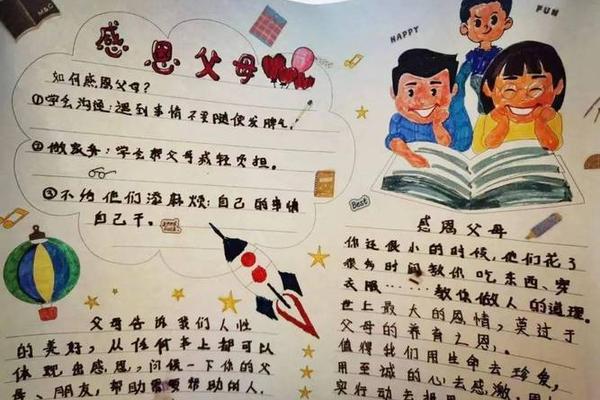 感恩父母
如何感恩父母?
①学会沟通:遇到事情不要随便发脾气。
②做家务:学会帮父母减轻负担。
③不给他们添麻烦:自己的事情
自己干。
HAPPY
FUN
Best
感恩父母
你还很小的时候,他们花了
很多时间教你吃东西、穿
衣服……教你做人的道理。
世上最大的恩情,莫过于
父母的养育之恩。
值得我们用生命去珍爱,
用至诚的心去感激,用
实行动去报恩
父母告诉我们人性
的美好,从任何事上都可以
体现出感恩,问候一下你的父
母、朋友,帮助需要帮助的人.